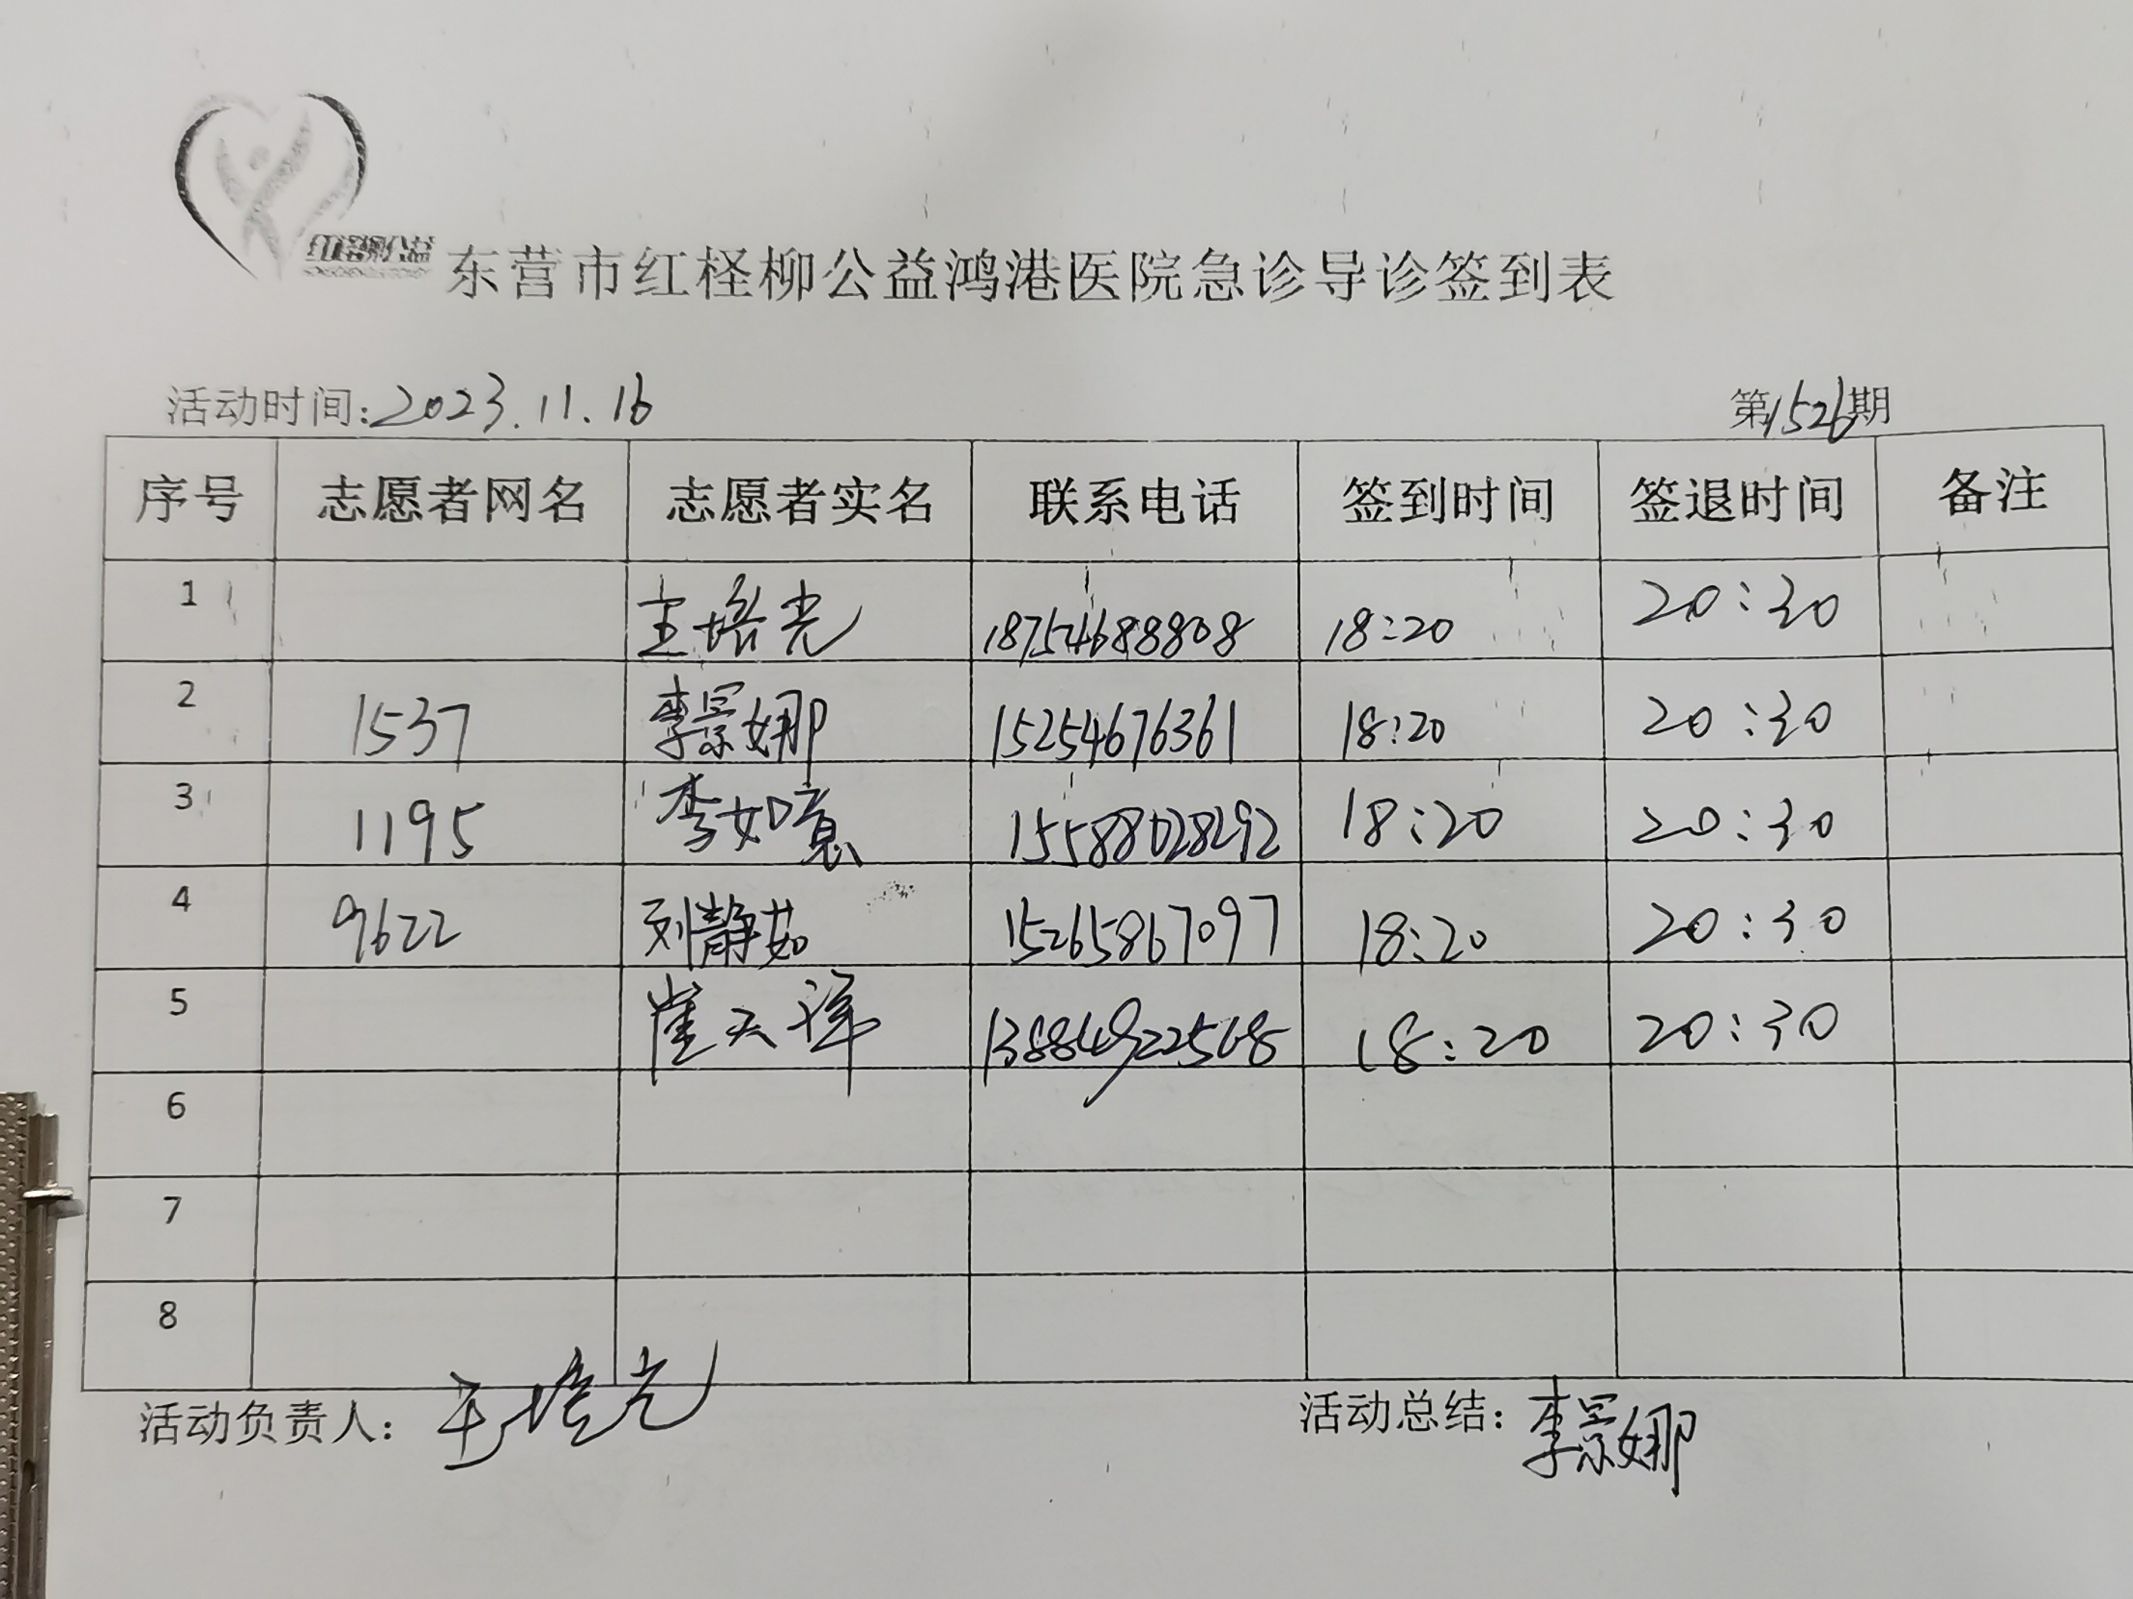 红柽柳公益
东营市红柽柳公益鸿港医院急诊导诊签到表
活动时间:2023.11.16 第1526期
序号 志愿者网名 志愿者实名 联系电话 签到时间 签退时间 备注
1 王培光 18754688808 18:20 20:30
2 1537 李景娜 15254676361 18:20 20:30
3 1195 李如意 15588028292 18:20 20:30
4 9622 刘静茹 15265867097 18:20 20:30
5 崔天泽 13884922568 18:20 20:30
6
7
8
活动负责人: 王培光 活动总结: 李景娜